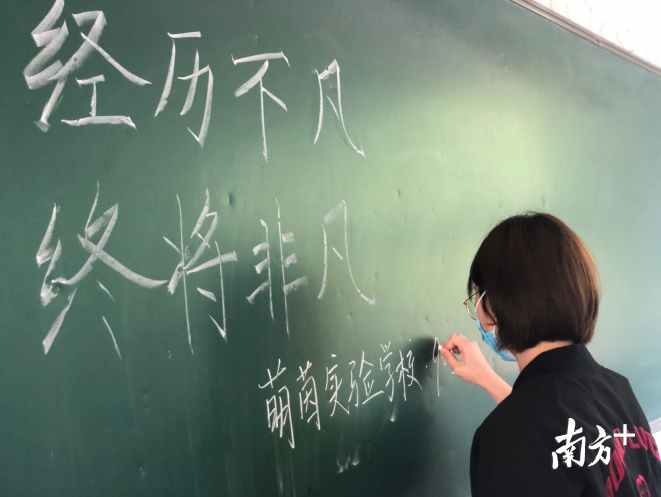 经历不凡
终将非凡
萌茵实验学校
南方+